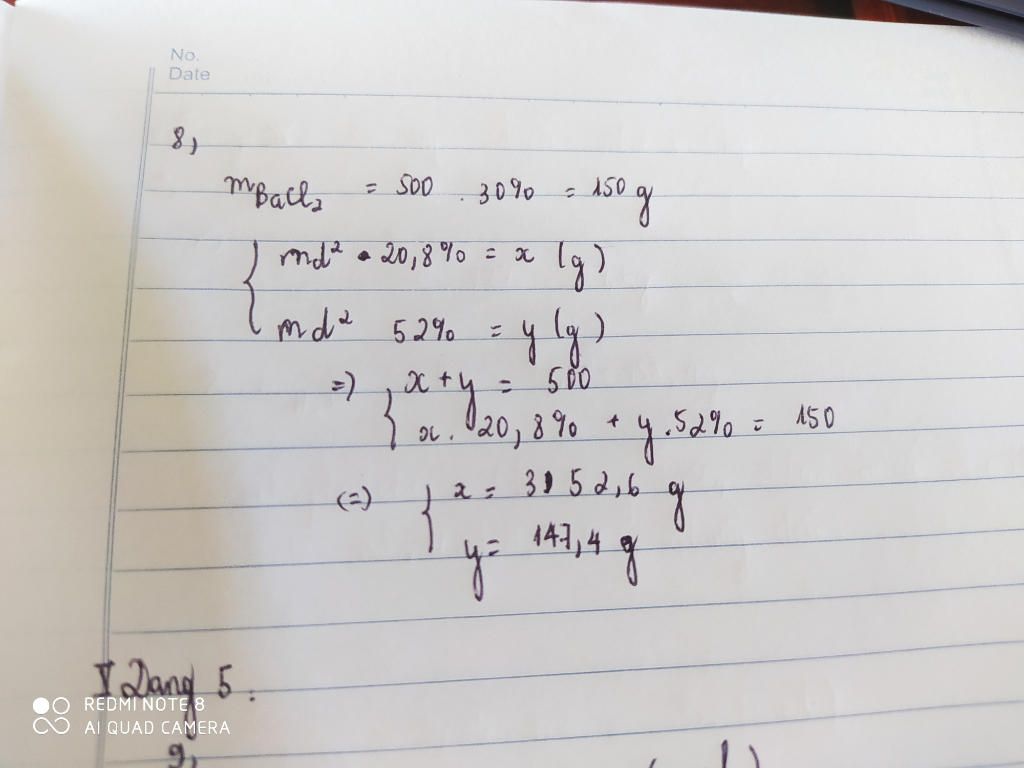 No.
Date
8,
mBaCl₂ = 500 . 30% = 150 g
md² 20,8% = x (g)
md² 52% = y (g)
=) x + y = 500
x. 20,8% + y.52% = 150
(=) x = 352,6 g
y = 147,4 g
V Dang 5.
9,
REDMI NOTE 8
AI QUAD CAMERA